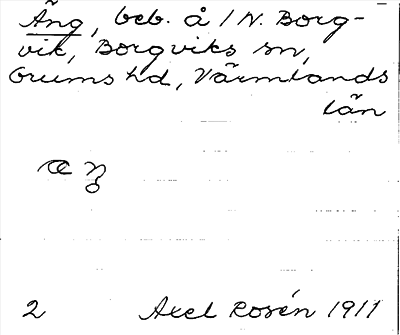 Äng, beb. å /N. Borg-
vik, Borgviks sn,
Grums hd, Värmlands
län
æŋ
2 Axel Rosén 1911